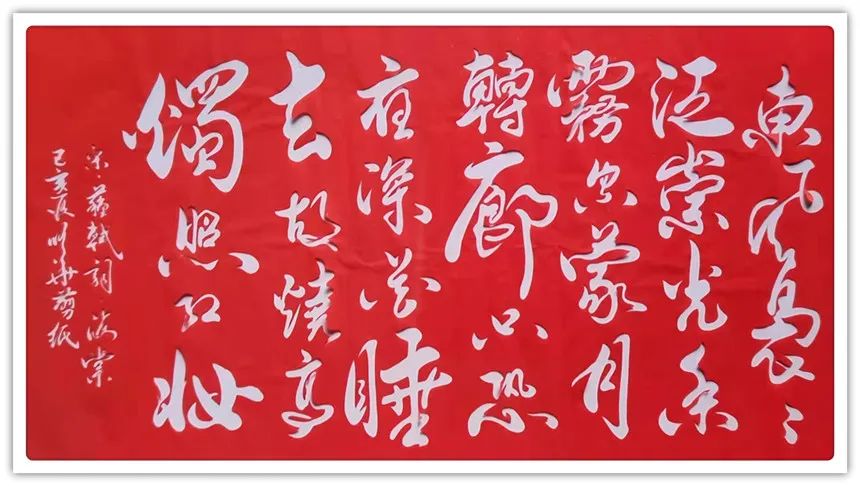 東风裊〻
泛崇光香
霧空蒙月
轉廊只恐
夜深花睡
去故燒高
燭照红妆
宋·蘇軾詞·海棠
己亥 剪紙